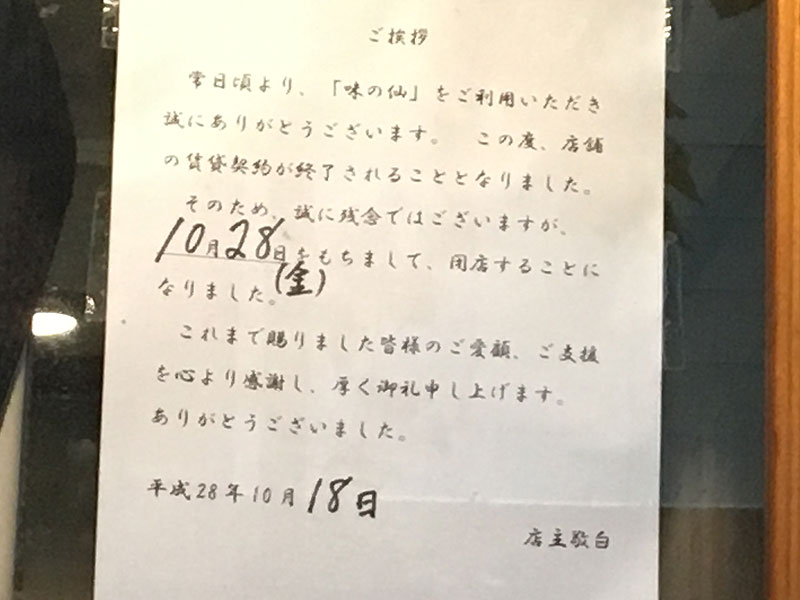 ご挨拶
常日頃より、「味の仙」をご利用いただき
誠にありがとうございます。 この度、店舗
の賃貸契約が終了されることとなりました。
そのため、誠に残念ではございますが、
10月28日をもちまして、閉店することに
(金)
なりました。
これまで賜りました皆様のご愛顧、ご支援
を心より感謝し、厚く御礼申し上げます。
ありがとうございました。
平成28年10月18日
店主敬白